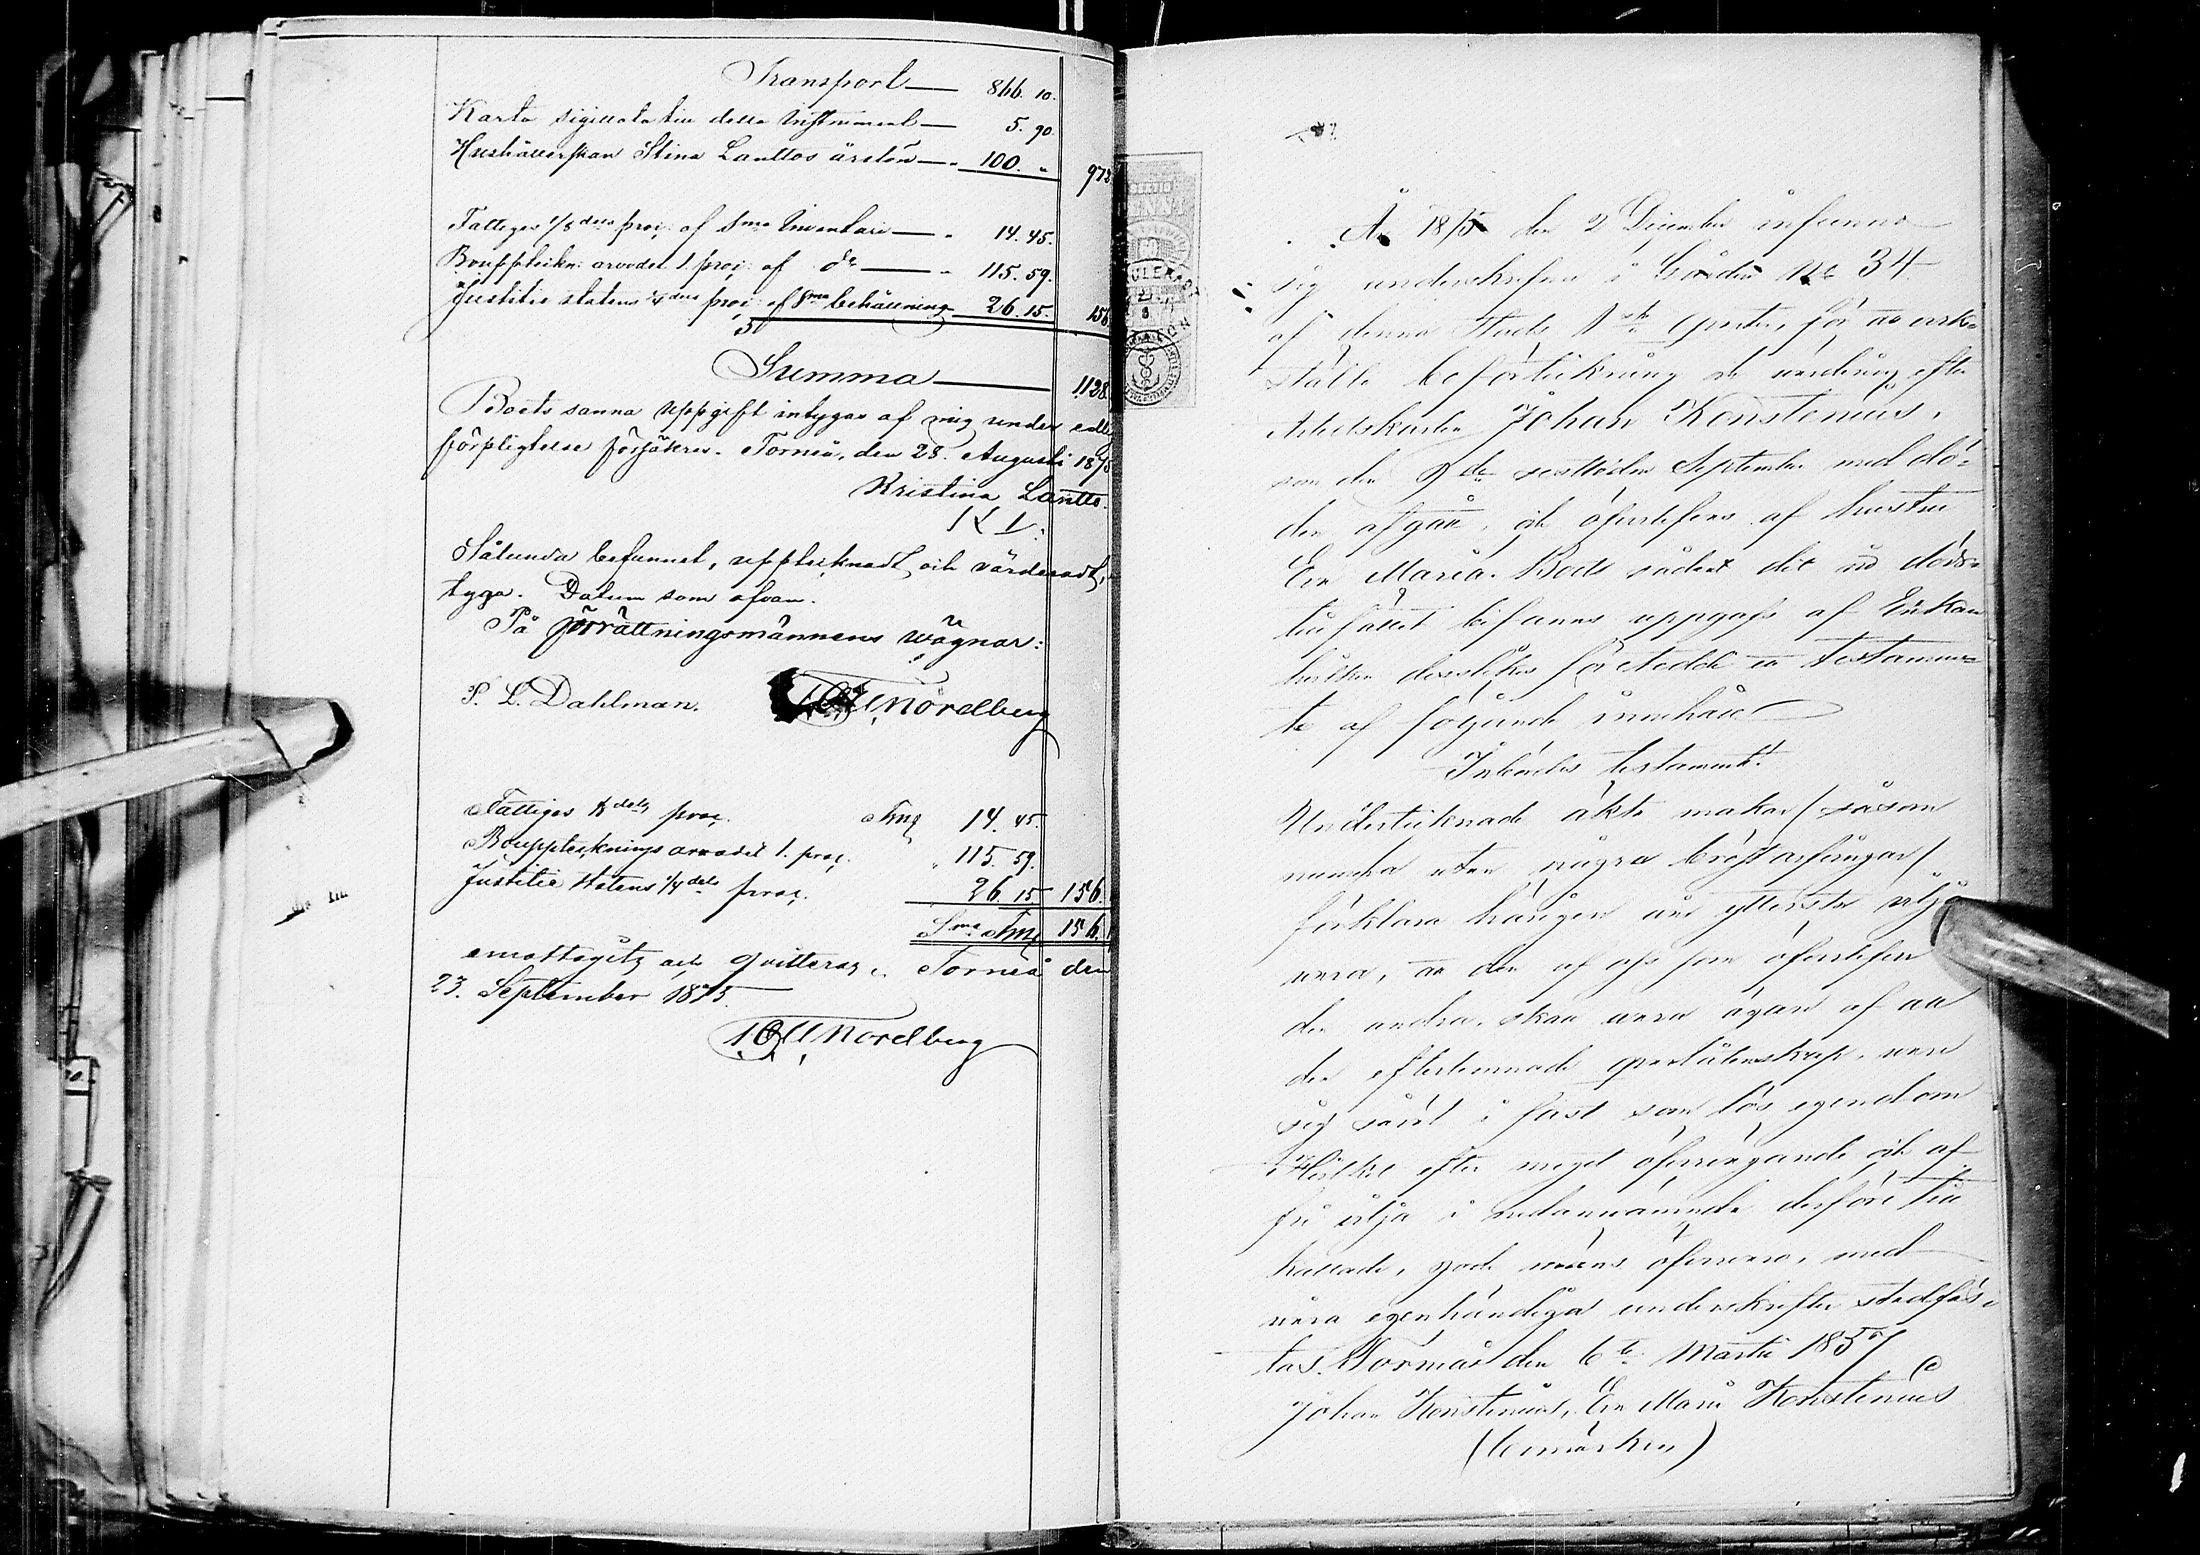 Transport — 866. 10.
Karta sigillata till detta Instrument — 5. 90.
Hushållerskan Stina Lanttos årslön — 100. " 972
Fattiges 1/8 dels proc: af Sma Inventarii — " 14. 45.
Bouppteckn: arvodet 1. proc: af do — " 115. 59.
Justitie statens 1/4 dels proc: af Sma behållning 26. 15. 156
Summa — 1128
Boets sanna uppgift intygas af mig under edlig
förpligtelse försäkras. Torneå, den 28. Augusti 1875
Kristina Lantto.
Sålunda befunnet, upptecknadt och värderadt,
tyga. Datum som ofvan.
På förrättningsmännens wägnar:
P. L. Dahlman. Nordberg
Fattiges 1/8 dels proc. Fmk 14. 45.
Bouppteckningsarvodet 1. proc. " 115. 59.
Justitie Statens 1/4 dels proc. 26. 15 156.
Sma Fmk 156.
emottagits och qvitteras. Torneå den
23. September 1875.
Nordberg
År 1875 den 2 December infunno
sig undertecknade i Gården No 34
af denna Stads 1sta qvarter, för att verk-
ställa boförteckning och värdering efter
Arbetskarlen Johan Konstenius,
som den 9de sistlidne September med dö-
den afgått, och öfverlefves af hustru
Eva Maria. Boets sådant det vid döds-
tillfället befanns uppgafs af Enkan
hvilken derstädes företedde ett testamen-
te af följande innehåll
Inbördes testamente.
Undertecknade äkta makar (såsom
numera utan några bröstarfvingar)
förklara härigenom vår yttersta vilja
vara, att den af oss som öfverlefver
den andra, skall vara ägare af all
den efterlemnade qvarlåtenskap, vare
sig såväl i fast som lös egendom
Hvilket efter moget öfvervägande och af
fri vilja i nedannämnde derföre till
kallade, gode mäns öfvervaro, med
våra egenhändiga underskrifter stadfäs-
tas. Torneå den 6te Martii 1857
Johan Konstenius, Eva Maria Konstenius
(bomärken)